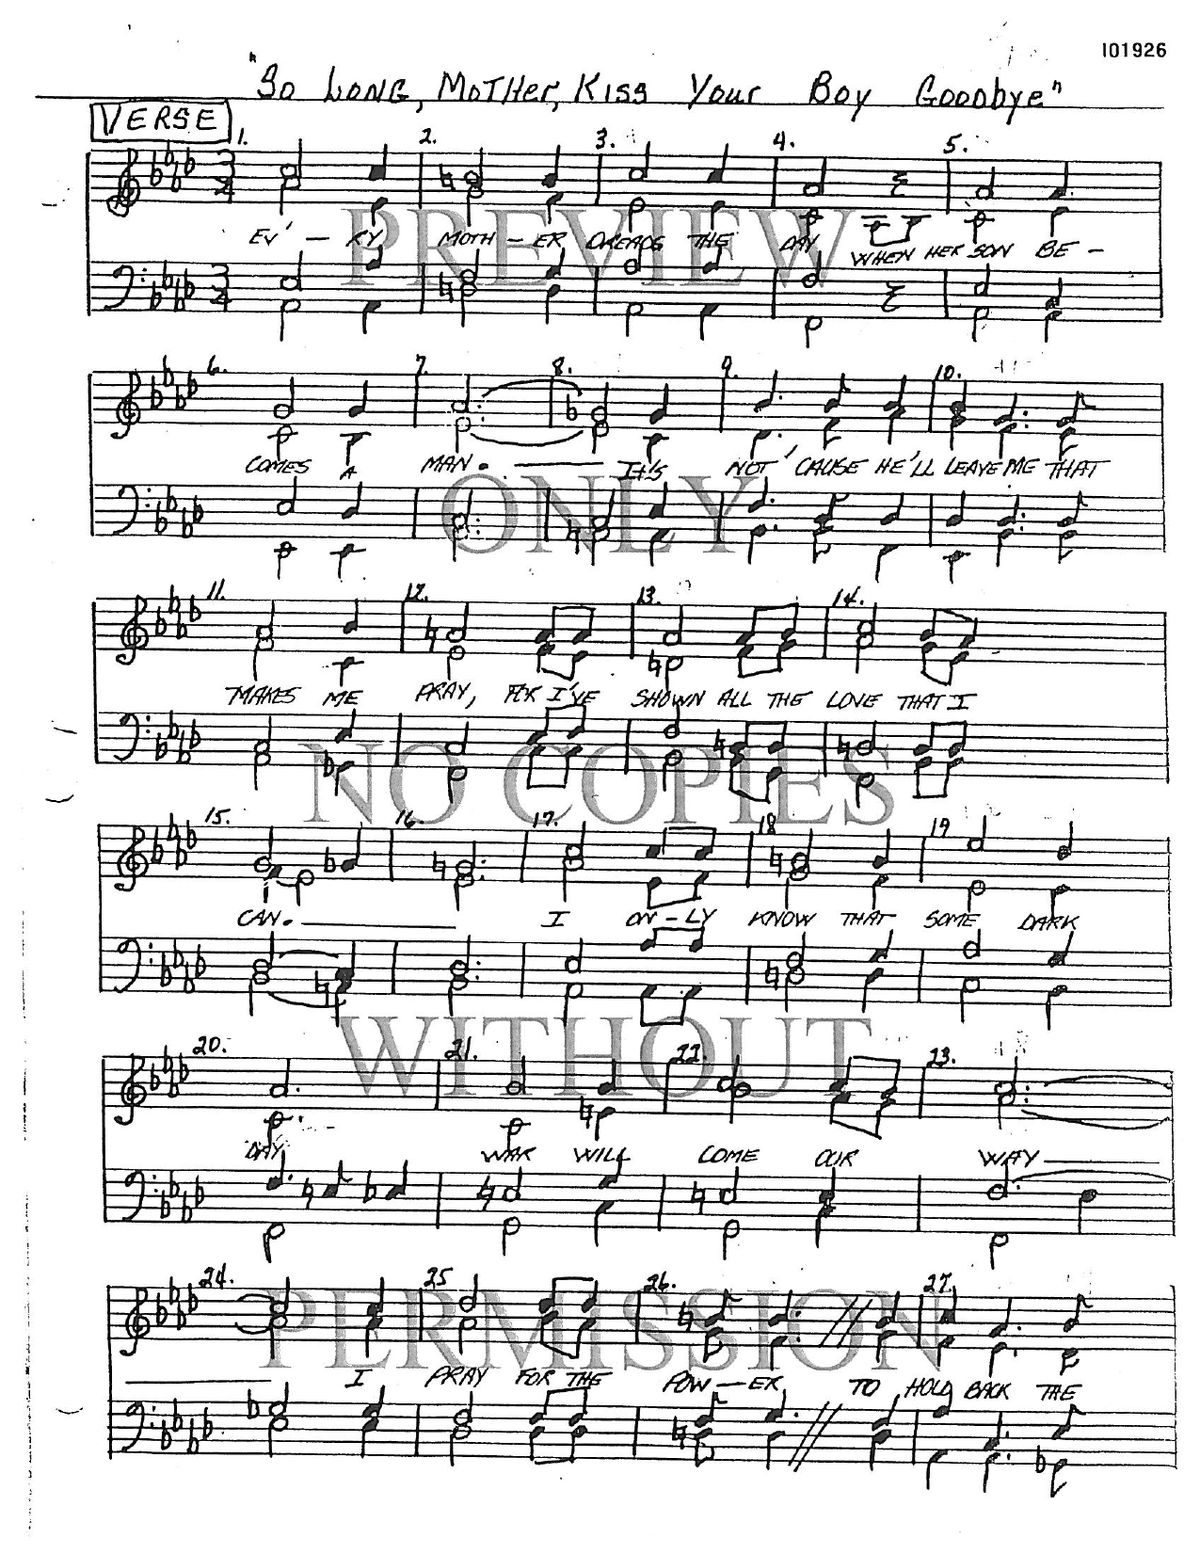 101926
"So Long, Mother, Kiss Your Boy Goodbye"
VERSE
1. 2. 3. 4. 5.
EV' — RY MOTH — ER DREADS THE DAY WHEN HER SON BE —
PREVIEW
6. 7. 8. 9. 10.
COMES A MAN. IT'S NOT 'CAUSE HE'LL LEAVE ME THAT
ONLY
11. 12. 13. 14.
MAKES ME PRAY, FOR I'VE SHOWN ALL THE LOVE THAT I
NO COPIES
15. 16. 17. 18 19
CAN. I ON — LY KNOW THAT SOME DARK
WITHOUT
20. 21. 22. 23.
DAY WAR WILL COME OUR WAY
24. 25 26. 27.
PERMISSION
I PRAY FOR THE POW — ER TO HOLD BACK THE